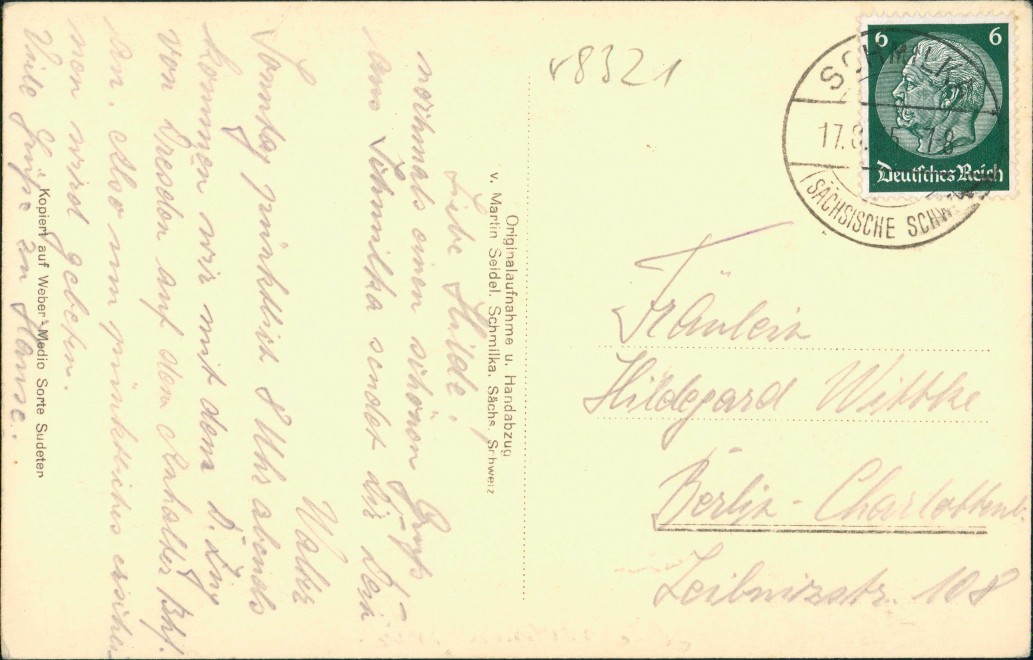 v8321
6 6
Deutsches Reich
SCHMILKA
17.8. 5. 7-8
(SÄCHSISCHE SCHW
Liebe Hilde!
nochmals einen schönen Gruß
aus Schmilka sendet dir dein
Walter
Sonntag pünktlich 8 Uhr abends
kommen wir mit dem D. Zug
von Dresden auf dem Anhalter Bhf.
an. Also um pünktliches erscheinen
wird gebeten.
Viele Grüße zu Hause.
Originalaufnahme u. Handabzug
v. Martin Seidel, Schmilka, Sächs. Schweiz
Kopiert auf Weber-Medio Sorte Sudeten
Fräulein
Hildegard Wittke
Berlin-Charlottenb.
Leibnizstr. 108